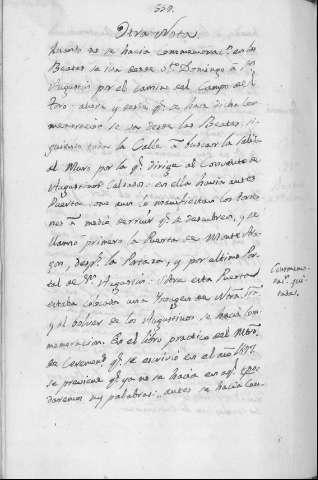 339.
Otra Nota.
Quando no se hacia Commemoracn. en las
Beatas se iva desde Sto. Domingo á Sn.
Agustin por el camino del Campo del
Toro: ahora y desde qe. se hace dicha Con-
memoracion se va desde las Beatas si-
guiendo toda la Calle á buscar la
el Muro por la qe. dirige al Convento de
Agustinos Calzados: en ella havia antes
Puerta como aun lo manifiestan los torre-
nes á medio derruir qe. se descubren, y se
llamó primero la Puerta de Monte Ara-
gon, desps. la Portaza, y por ultimo Por-
tal de Sn. Agustin: Sobre esta Puerta
estaba colocada una Ymagen de Ntra. Sra.
y al bolver de los Agustinos se hacia Con-
memoracion. En el libro practico del Mtro.
de Ceremons. qe. se escrivió en el año
se previene qe. ya no se hacia en aql.
daremos sus palabras: antes se hacia Con-
Conmemo-
racs. qui-
tadas.